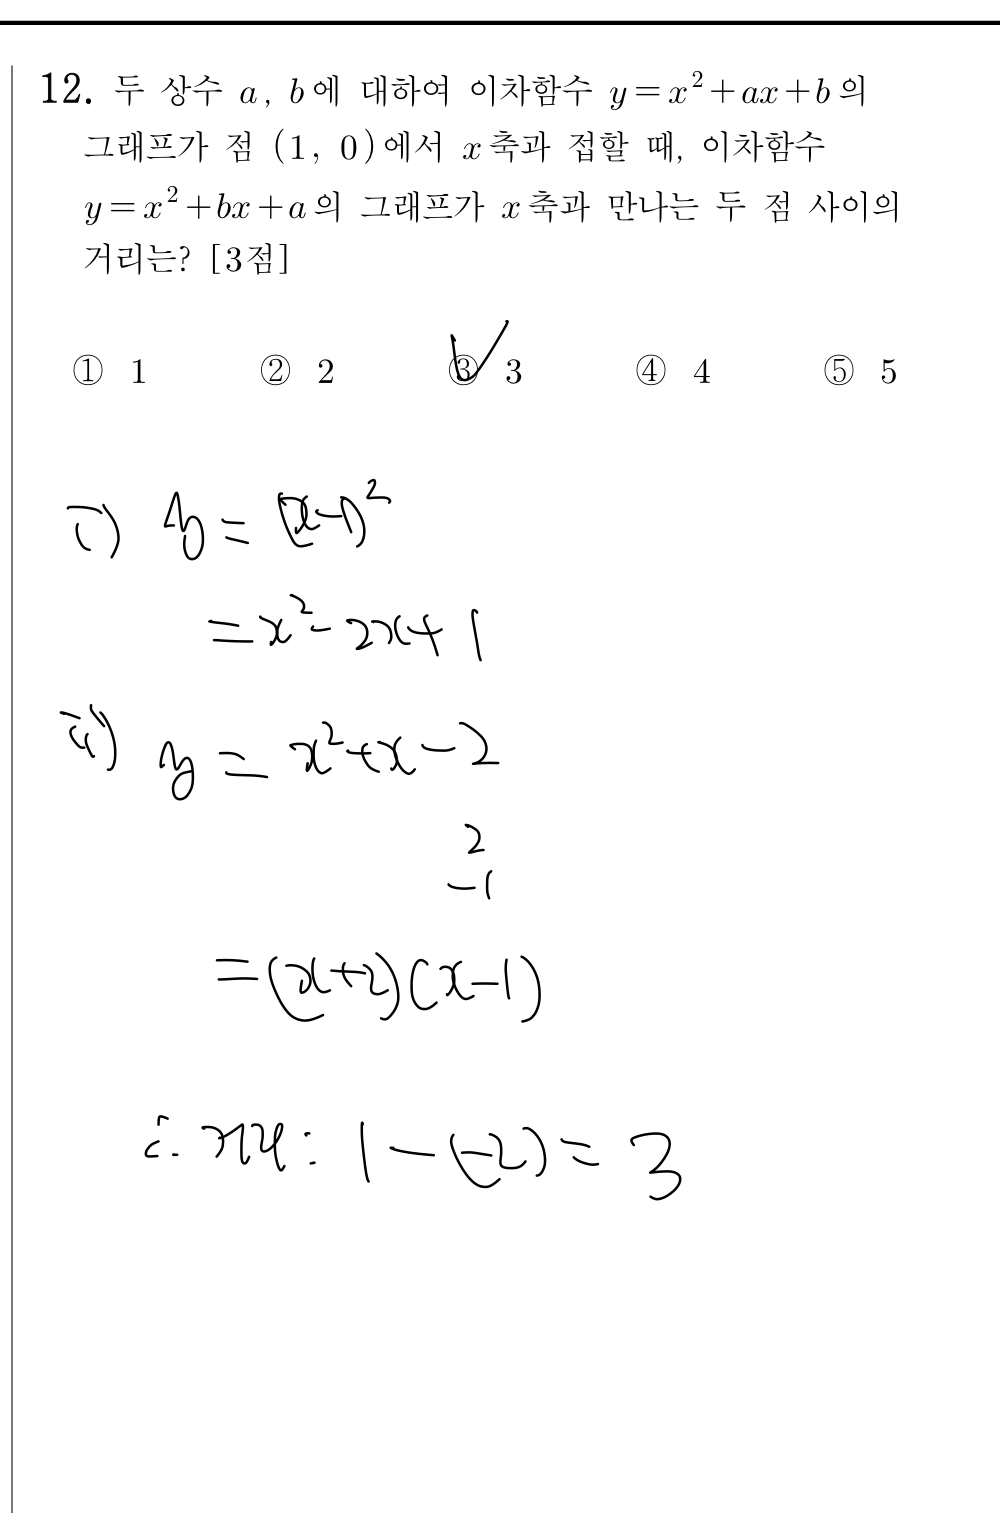 12. 두 상수 a, b에 대하여 이차함수 y=x²+ax+b의
그래프가 점 (1, 0)에서 x축과 접할 때, 이차함수
y=x²+bx+a의 그래프가 x축과 만나는 두 점 사이의
거리는? [3점]
① 1 ② 2 ③ 3 ④ 4 ⑤ 5
i) y = (x-1)²
= x² - 2x + 1
ii) y = x² + x - 2
2
-1
= (x+2)(x-1)
∴ 거리 : 1 - (-2) = 3